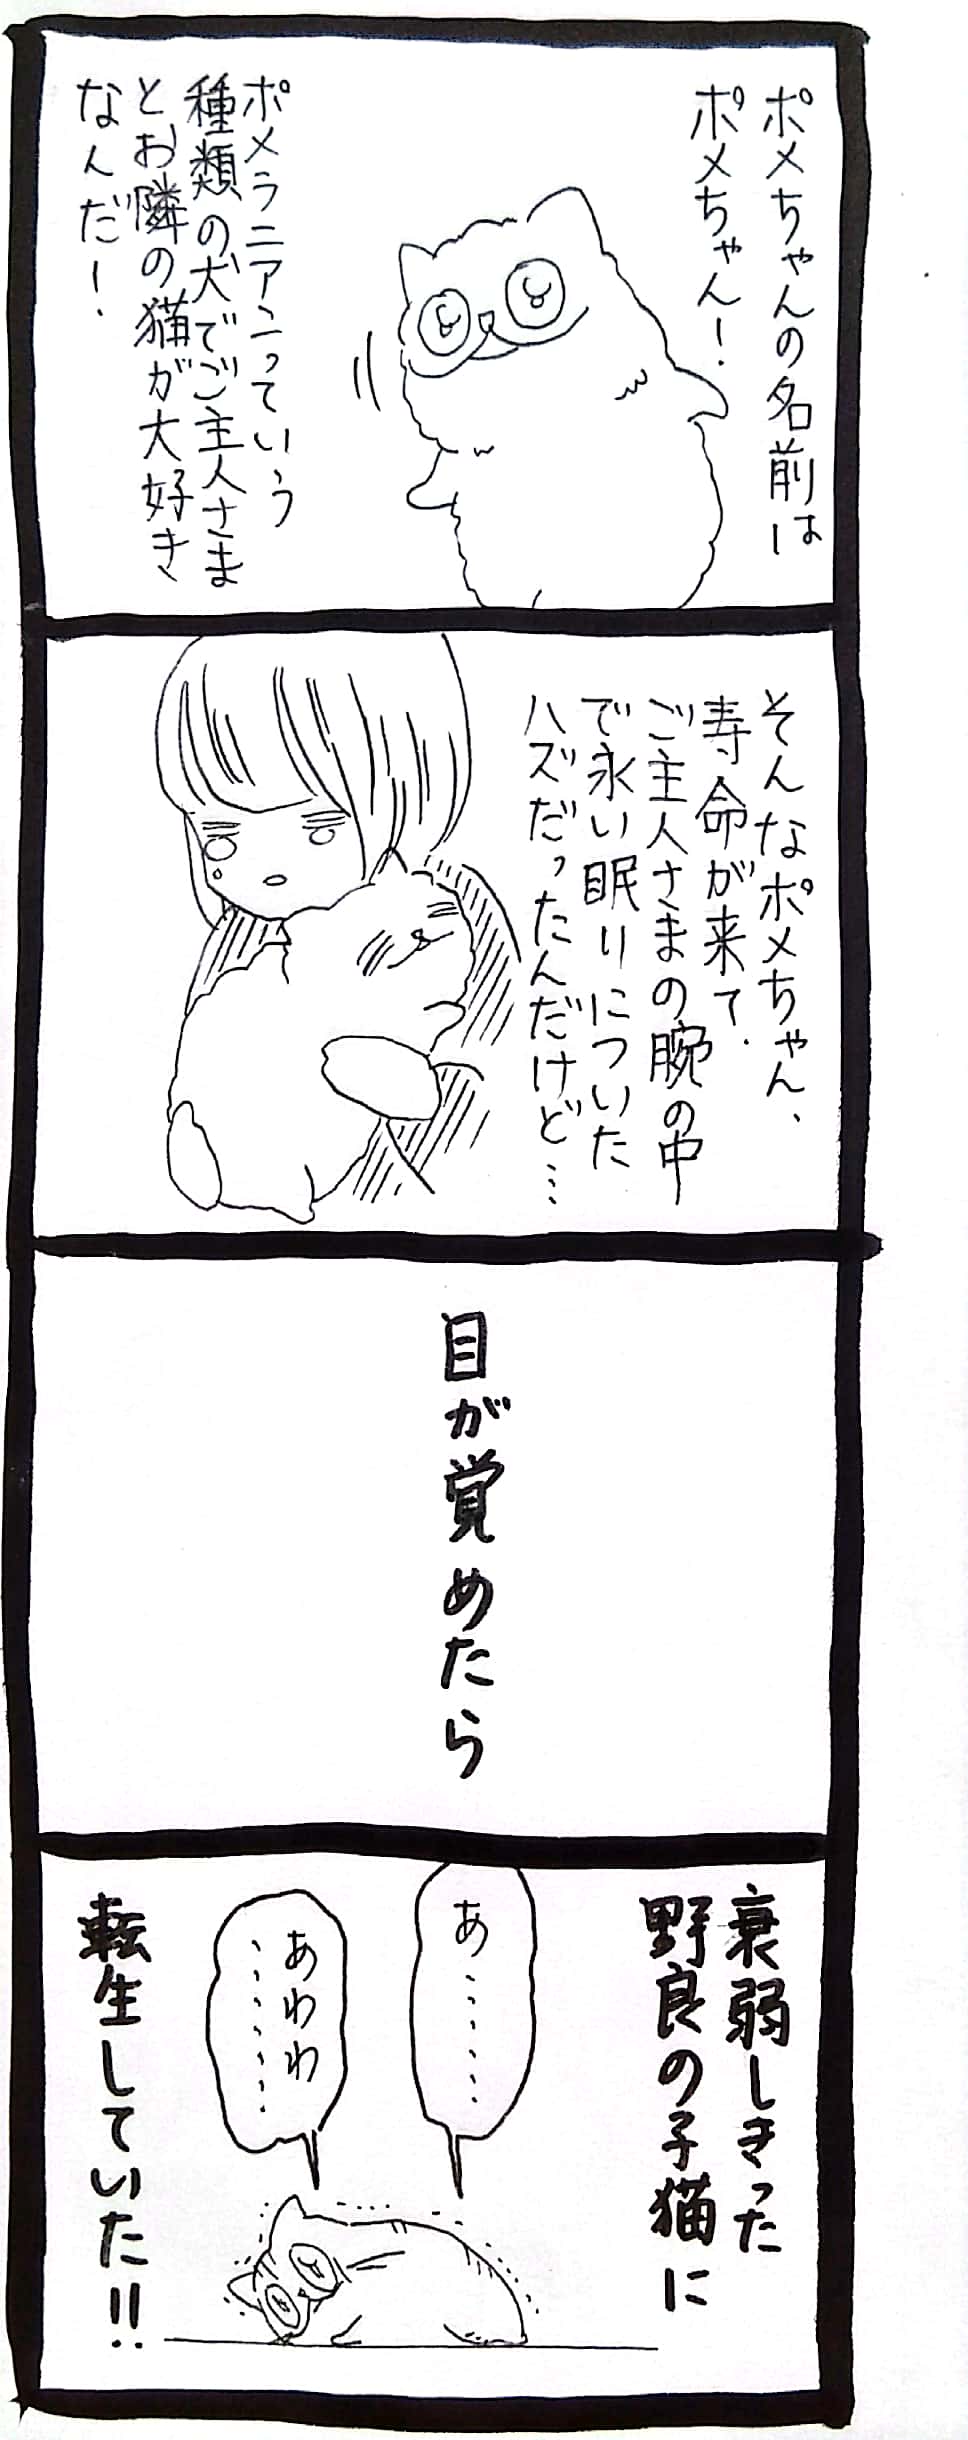 ポメちゃんの名前は
ポメちゃん！
ポメラニアンっていう
種類の犬でご主人さま
とお隣の猫が大好き
なんだー！
そんなポメちゃん、
寿命が来て、
ご主人さまの腕の中
で永い眠りについた
ハズだったんだけど…
目が覚めたら
衰弱しきった
野良の子猫に
あ……
あわわ
……
転生していた!!